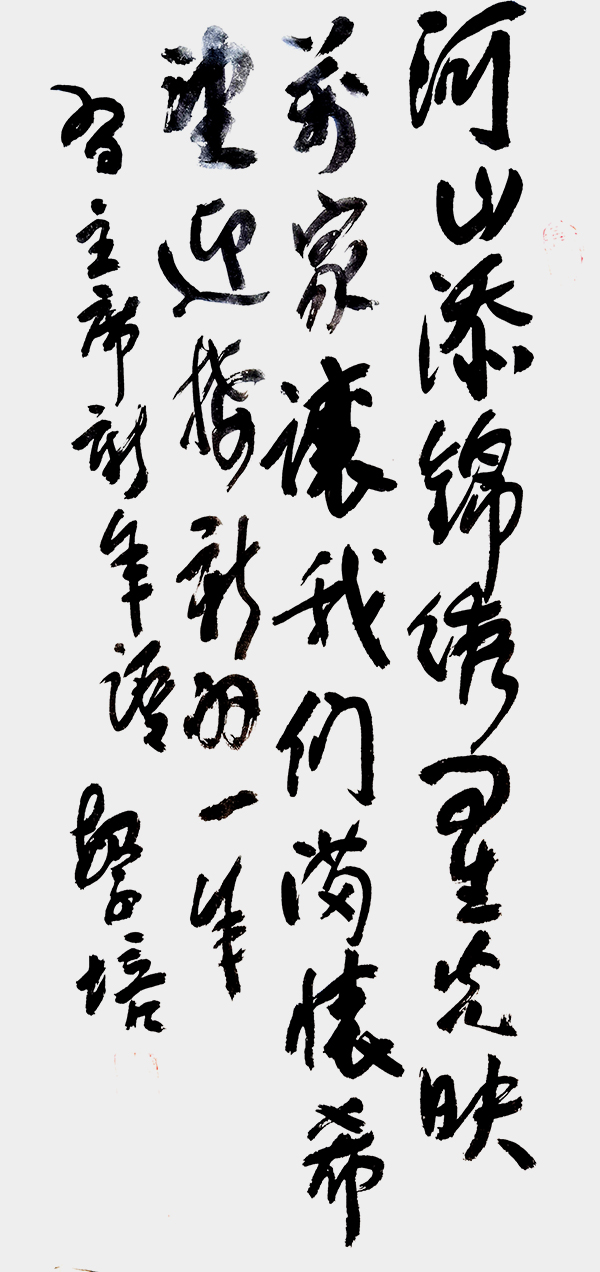 河山添锦绣星光映
万家让我们满怀希
望迎接新的一年
习主席新年语 黎培